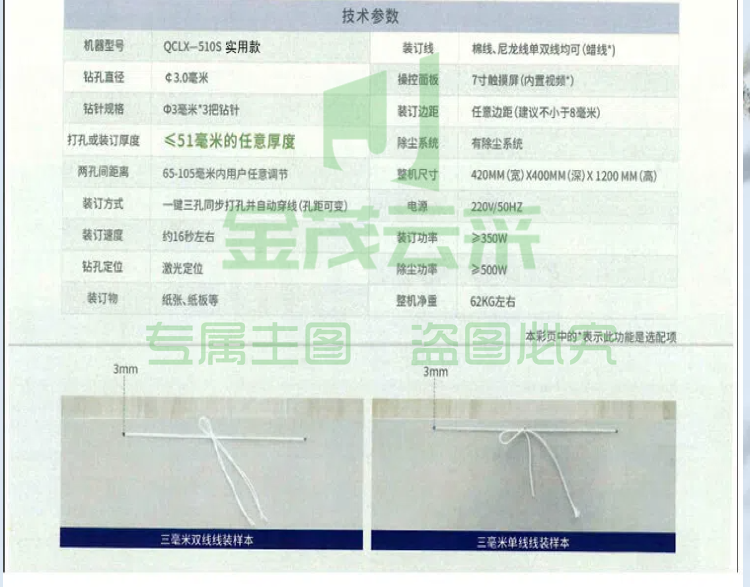 技术参数
机器型号 QCLX—510S 实用款 装订线 棉线、尼龙线单双线均可(蜡线*)
钻孔直径 ￠3.0毫米 操控面板 7寸触摸屏(内置视频*)
钻针规格 Φ3毫米*3把钻针 装订边距 任意边距(建议不小于8毫米)
打孔或装订厚度 ≤51毫米的任意厚度 除尘系统 有除尘系统
两孔间距离 65-105毫米内用户任意调节 整机尺寸 420MM(宽)X400MM(深)X 1200 MM(高)
装订方式 一键三孔同步打孔并自动穿线(孔距可变) 电源 220V/50HZ
金茂云采
装订速度 约16秒左右 装订功率 ≥350W
钻孔定位 激光定位 除尘功率 ≥500W
装订物 纸张、纸板等 整机净重 62KG左右
专属主图 盗图必究
本彩页中的*表示此功能是选配项
3mm 3mm
三毫米双线线装样本 三毫米单线线装样本